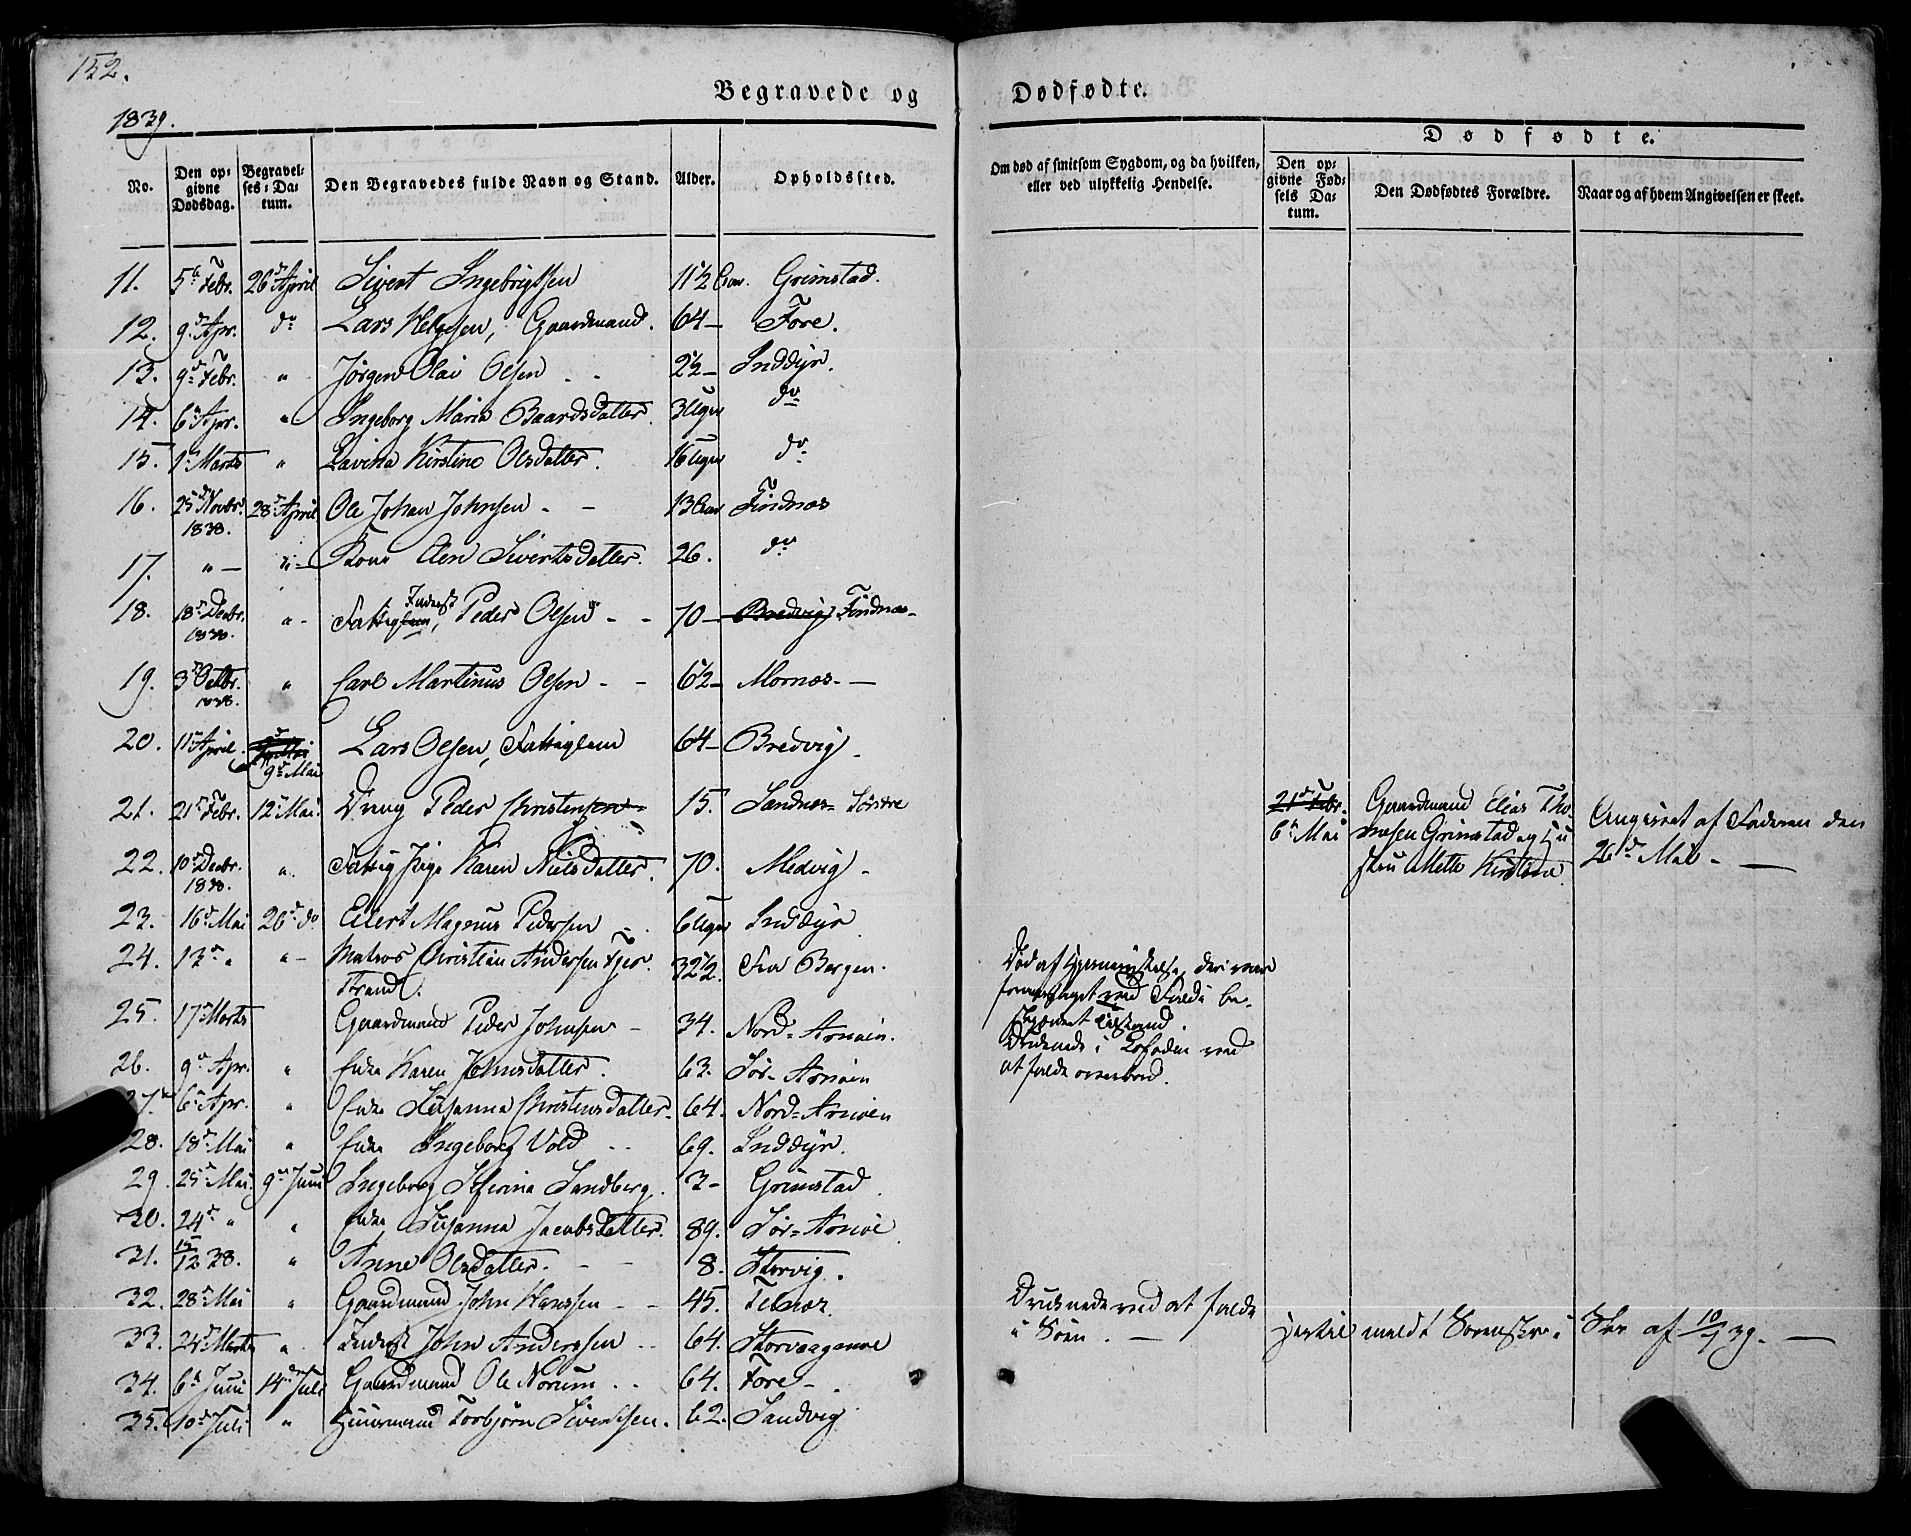 152.
Begravede og
Dødfødte.
1839.
No.
Den opgivne Dødsdag.
Begravelses-Datum.
Den Begravedes fulde Navn og Stand.
Alder.
Opholdssted.
Om død af smitsom Sygdom, og da hvilken, eller ved ulykkelig Hendelse.
Dødfødte.
Den opgivne Fødsels Datum.
Den Dødfødtes Forældre.
Naar og af hvem Angivelsen er skeet.
11. 5te Febr. 26d April Sivert Ingebrigtsen 11½ Grimstad.
12. 9d Apr. do Lars Helgesen, Gaardmand. 64 – Fore.
13. 9d Febr. " Jørgen Olai Olsen 2½ – Inddyr.
14. 6te Apr. " Ingeborg Maria Baardsdatter. 3 Uger do
15. 1d Marts " Lavina Kirstine Olsdatter. 16 Uger do
16. 25d Novbr. 1838. 28d April Ole Johan Johnsen – – 13 Findnæs
17. " – " – Kone Elen Sivertsdatter. 26. do
18. 18d Decbr. 1838. " – Inderst Peder Olsen – – 70 – Findnæs –
19. 3d Octbr. 1838. " Carl Martinus Olsen – – 6½ – Mornæs. –
20. 11d April. 9d Mai Lars Olsen, Fattiglem 64 – Bredvig –
21. 21d Febr. 12d Mai. Dreng Peder Christensen 15. Sandnæs Søndre
6te Mai Gaardmand Elias Thomesen Grimstad og Hustru Mette Kirstine
Angivet af Faderen den 26d Mai –
22. 10d Decbr. 1838. " Fattig Pige Karen Nielsdatter. 70. Medvig –
23. 16d Mai 26d do Eilert Magnus Pedersen 6 Uger Inddyr
24. 13d " " – Matros Christian Andersen Fjerstrand. 32½. Fra Bergen.
Død af Hjernerystelse, ved Fald i beskjænket Tilstand.
25. 17d Marts Gaardmand Peder Johnsen – 34. Nord-Arnøen.
Druknede i Lofoden ved at falde overbord.
26. 9d Apr. " Enke Karen Johnsdatter. 63. Sør-Arnøen
27. 6te Apr. " Enke Susanna Christensdatter. 64. Nord-Arnøen
28. 18d Mai " Enke Ingeborg Vold 69. Inddyr.
29. 25d Mai 9de Juni Ingeborg Serina Sandberg. 3 – Grimstad
30. 24d " " Enke Susanna Jacobsdatter. 89. Sør-Arnøe
31. 15/12 38. " Anne Olsdatter. – – 8. Storvig.
32. 28d Mai " Gaardmand John Hanssen – – 45. Telnæs.
Druknede ved at falde i Søen. –
33. 24d Marts " Inderst John Anderssen 64.
Hertil meldt Sorenskr. i Skr. af 10/7 39. –
34. 6te Juni 14de Juli Gaardmand Ole Norum 64. Fore –
35. 10d Juli " Huusmand Torbjørn Sivertsen. 62. Sandvig